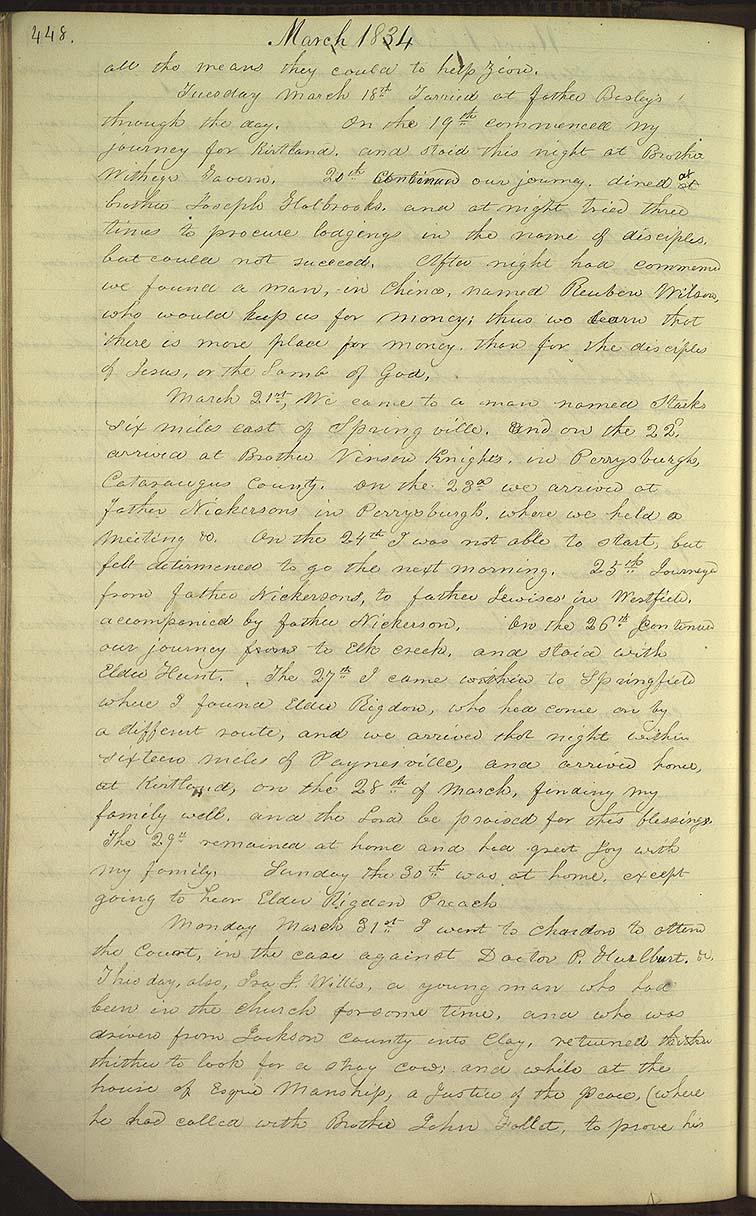 448.
March 1834
all the means they could to help Zion.
Tuesday March 18th Tarried at father Besley's
through the day. On the 19th commenced my
journey for Kirtland, and staid this night at Brother
Withey's Tavern. 20th Continued our journey. dined at
brother Joseph Holbrooks, and at night tried three
times to procure lodgengs in the name of disciples,
but could not succeed. After night had commenced
we found a man, in China, named Reuben Wilson,
who would keep us for money; thus we learn that
there is more place for money. than for the disciples
of Jesus, or the Lamb of God.
March 21st, We came to a man named Starks
six miles east of Springville. and on the 22d.
arrived at Brother Vinson Knights, in Perrysburgh,
Cataraugus County. On the 23d we arrived at
father Nickersons in Perrysburgh, where we held a
meeting &c. On the 24th I was not able to start, but
felt determened to go the next morning. 25th Journeyed
from father Nickersons, to father Lewises' in Westfield.
accompanied by father Nickerson. On the 26th Continued
our journey from to Elk creek, and staid with
Elder Hunt. The 27th I came within to Springfield
where I found Elder Rigdon, who had come on by
a different route, and we arrived that night within
sixteen miles of Paynesville, and arrived home,
at Kirtland, on the 28th of March, finding my
family well, and the Lord be praised for this blessings.
The 29th remained at home and had great Joy with
my family. Sunday the 30th was at home, except
going to hear Elder Rigdon Preach
Monday March 31st I went to chardon to attend
the Court, in the case against Doctor P. Hurlburt. &c.
This day, also, Ira J. Willis, a young man who had
been in the church for some time, and who was
driven from Jackson County into Clay, returned thither
thither to look for a stray cow; and while at the
house of Esqrie Manship, a Justice of the Peace, (where
he had called with Brother John Follet, to prove his